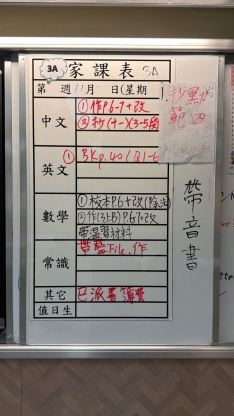 3A
家課表 3A
第 週 11月 日(星期
中文
①作P.6-7+改
③抄(十一)(3-5段
英文
①BKp.40/Q1-6
數學
①校本P.6+改
②作(3上B)P.6,7+改
帶溫習材料
常識
帶藍File、作
其它
已派書簿費
值日生
範四
帶音書